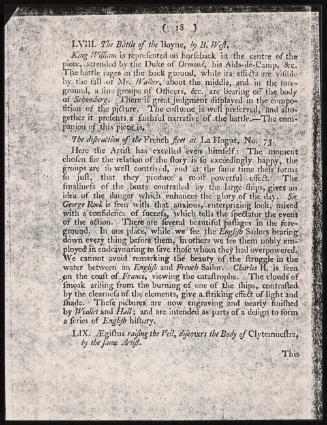 ( 18
LVIII. The Battle of the Boyne, by B. West.
King William is represented on horseback in the centre of the
piece, attended by the Duke of Ormond, his Aids-de-Camp, &c.
The battle rages in the back ground, while its effects are visible
by the fall of Mr. Walker, about the middle, and in the fore-
ground, a fine groupe of Officers, &c. are bearing off the body
of Schomberg. There is great judgment displayed in the compo-
sition of the picture. The costume is well preserved, and alto-
gether it presents a faithful narrative of the battle.—The com-
panion of this piece is,
The destruction of the French fleet at La Hogue, No. 73.
Here the Artist has excelled even himself: The moment
chosen for the relation of the story is so exceedingly happy, the
groups are so well contrived, and at the same time their forms
so just, that they produce a most powerful effect. The
smallness of the boats contrasted by the large ships, gives an
idea of the danger which enhances the glory of the day. Sir
George Rook is seen with that anxious, enterprizing look, mixed
with a confidence of success, which tells the spectator the event
of the action. There are several beautiful passages in the fore-
ground. In one place, while we see the English Sailors bearing
down every thing before them, in others we see them nobly em-
ployed in endeavouring to save those whom they had overpowered.
We cannot avoid remarking the beauty of the struggle in the
water between an English and French Sailor. Charles II. is seen
on the coast of France, viewing the catastrophe. The clouds of
smoak arising from the burning of one of the ships, contrasted
by the clearness of the elements, give a striking effect of light and
shade. These pictures are now engraving and nearly finished
by Woollet and Hall; and are intended as parts of a design to form
a series of English history.
LIX. Ægisthus raising the Veil, discovers the Body of Clytemnestra,
by the same Artist.
This